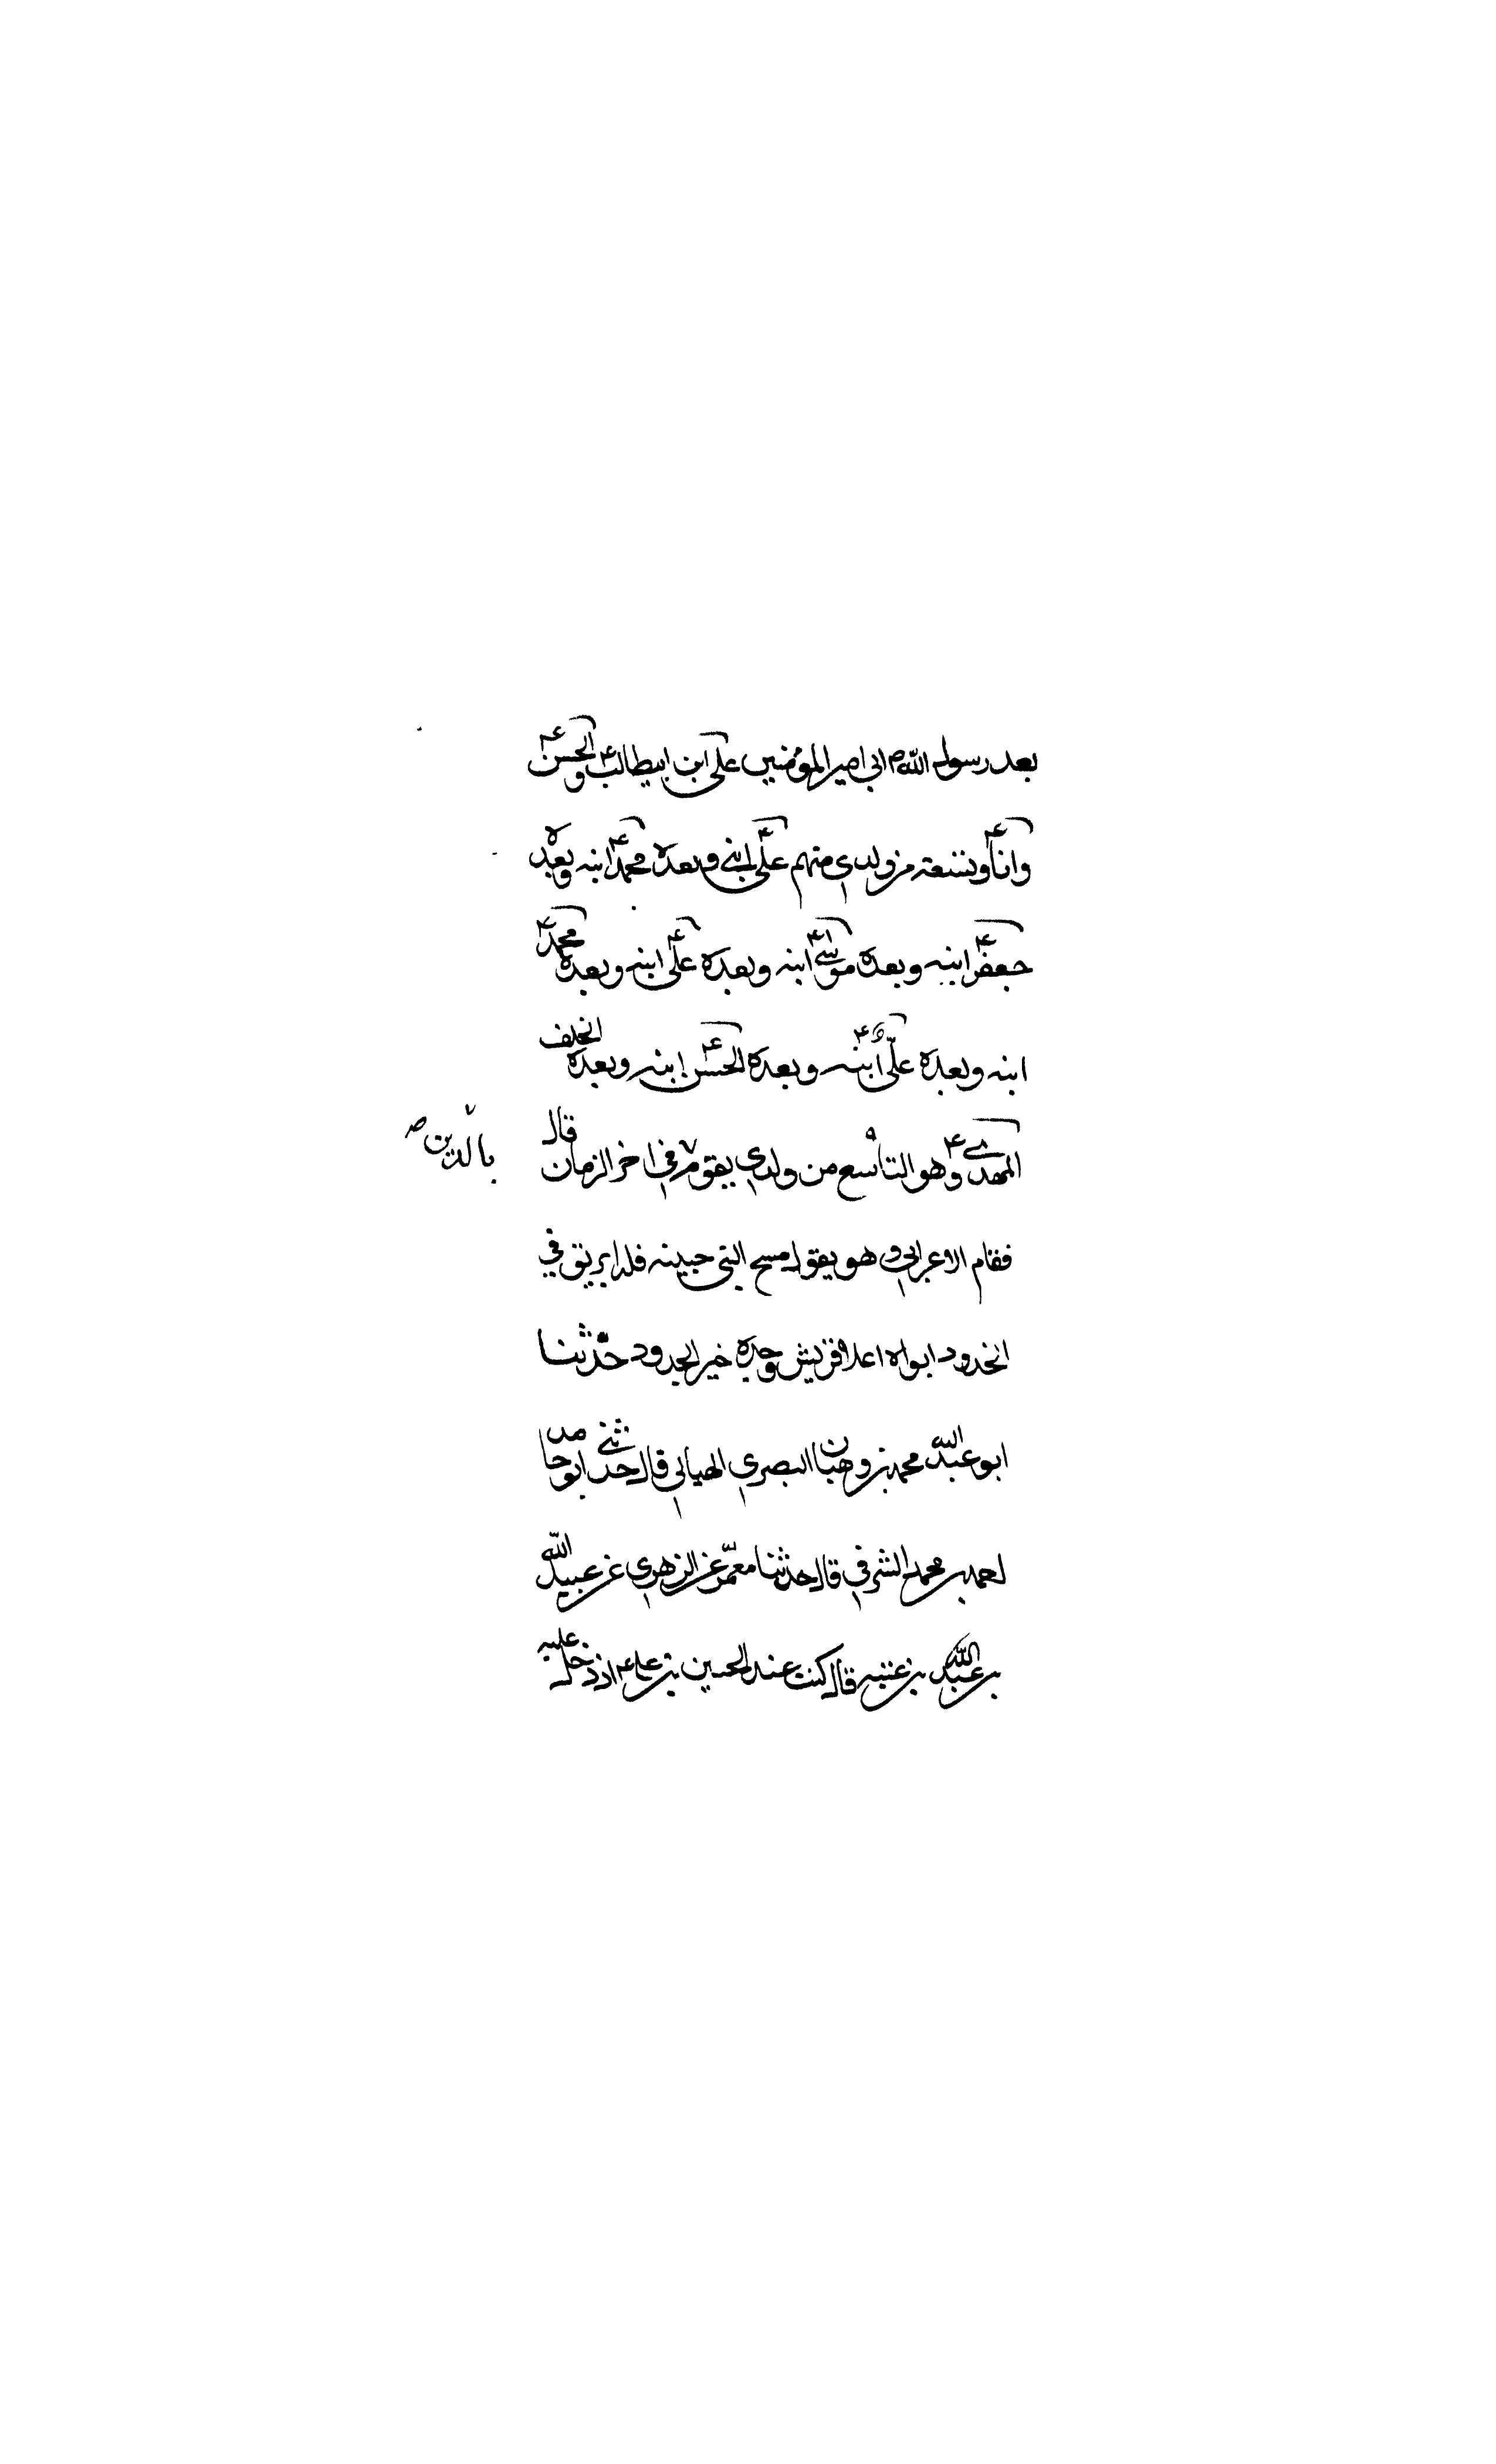 بعد رسول الله ص ابي امير المؤمنين علي ابن ابيطالب ع والحسن ع
وانا ع وتسعة من ولدي منهم علي ع ابني وبعده محمد ع ابنه وبعده
جعفر ع ابنه وبعده موسي ع ابنه وبعده علي ع ابنه وبعده محمد ع
ابنه وبعده علي ع ابنه وبعده الحسن ع ابنه وبعده الخلف
المهدي ع وهو التاسع من ولدي يقوم في اخر الزمان قال
بالدين ص
فقام الاعرابي وهو يقول مسح النبي جبينه فله بريق في
الخدود ابواه اعلا قريش وجده خير الجدود حدثنا
ابو عبد الله محمد بن وهبان البصري الهياني قال حدثني ابو حامد
احمد بن محمد الشرقي قال حدثنا معمر عن الزهري عن عبيد الله
بن عبد الله بن عتبه قال كنت عند الحسين بن علي ع اذ دخل عليه